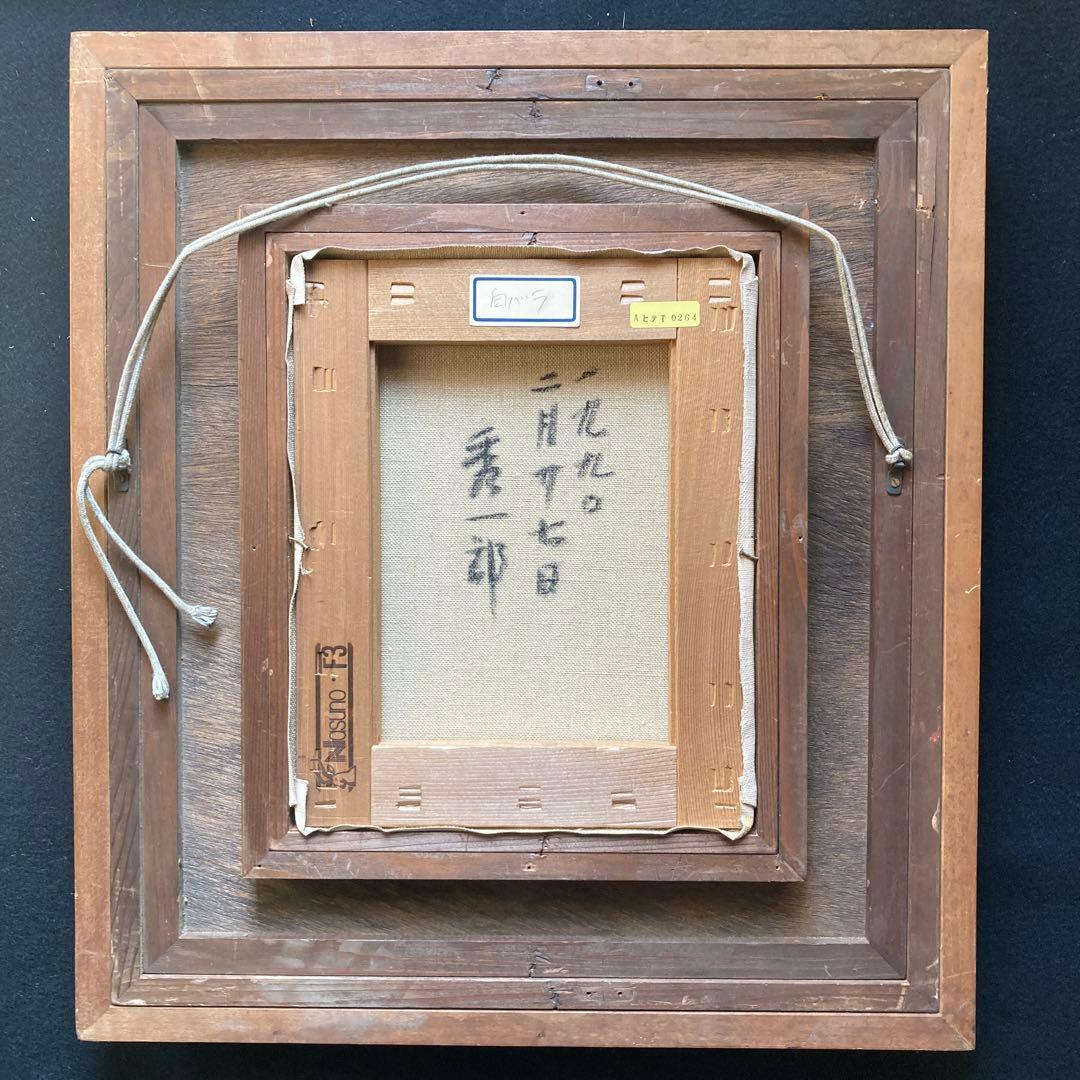 白バラ
AヒテT 0264
一九九〇
二月廿七日
秀一郎
Nasuno・F3